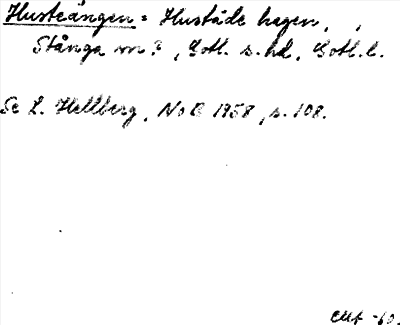 Husteängen = Hustäde hagen,
Stånga sn?, Gotl. s. hd, Gotl. l.
Se L. Hellberg, NoB 1958, s. 108.
-60.